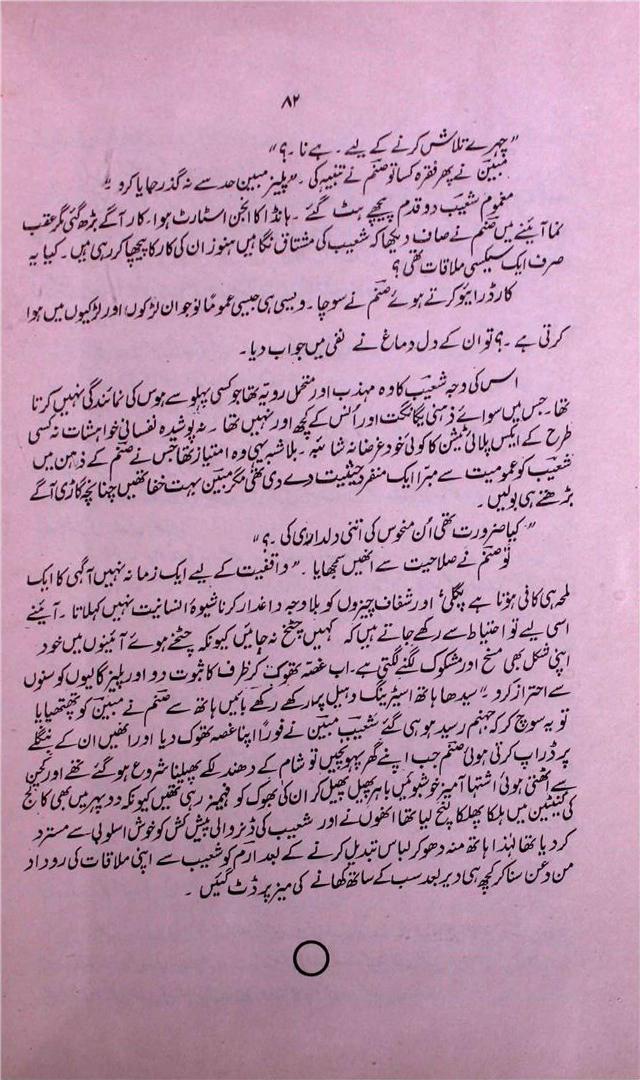 ۸۲
"چہرے تلاش کرنے کے لیے۔ ہے نا۔؟"
مبین نے پھر فقرہ کسا تو صنم نے تنبیہ کی۔ "پلیز مبین حد سے نہ گذر جایا کرو"
مغموم شعیب دو قدم پیچھے ہٹ گئے۔ ہانڈا کا انجن اسٹارٹ ہوا۔ کار آگے بڑھ گئی مگر عقب
نما آئینے میں صنم نے صاف دیکھا کہ شعیب کی مشتاق نگاہیں ہنوز ان کی کار کا پیچھا کر رہی ہیں۔ کیا یہ
صرف ایک سیکسی ملاقات تھی؟
کار ڈرائیو کرتے ہوئے صنم نے سوچا۔ ویسی ہی جیسی عموماً نوجوان لڑکوں اور لڑکیوں میں ہوا
کرتی ہے۔؟ تو ان کے دل دماغ نے نفی میں جواب دیا۔
اس کی وجہ شعیب کا وہ مہذب اور متحمل رویہ تھا جو کسی پہلو سے ہوس کی نمائندگی نہیں کرتا
تھا۔ جس میں سوائے ذہنی یگانگت اور اُنس کے کچھ اور نہیں تھا۔ نہ پوشیدہ نفسانی خواہشات نہ کسی
طرح کے ایکس پلائی ٹیشن کا کوئی خود غرضانہ شائبہ۔ بلا شبہ یہی وہ امتیاز تھا جس نے صنم کے ذہن میں
شعیب کو عمومیت سے مبرّا ایک منفرد حیثیت دے دی تھی مگر مبین بہت خفا تھیں چنانچہ گاڑی آگے
بڑھتے ہی بولیں۔
"کیا ضرورت تھی اُن منحوس کی اتنی دلداری کی۔؟"
تو صنم نے صلاحیت سے انھیں سمجھایا۔ "واقفیت کے لیے ایک زمانہ نہیں آگہی کا ایک
لمحہ ہی کافی ہوتا ہے پگلی، اور شفاف چیزوں کو بلا وجہ داغدار کرنا شیوۂ انسانیت نہیں کہلاتا۔ آئینے
اسی لیے تو احتیاط سے رکھے جاتے ہیں کہ کہیں چٹخ نہ جائیں کیونکہ چٹخے ہوئے آئینوں میں خود
اپنی شکل بھی مسخ اور مشکوک لگنے لگتی ہے۔ اب غصہ تھوک کر ظرف کا ثبوت دو اور پلیز گالیوں کوسنوں
سے احتراز کرو" سیدھا ہاتھ اسٹیرنگ وہیل پہ رکھے رکھے بائیں ہاتھ سے صنم نے مبین کو تھپتھپایا
تو یہ سوچ کر کہ جہنم رسید ہو ہی گئے شعیب مبین نے فوراً اپنا غصہ تھوک دیا اور انھیں ان کے بنگلے
پر ڈراپ کرتی ہوئی صنم جب اپنے گھر پہونچیں تو شام کے دھندلکے پھیلنا شروع ہو گئے تھے اور کچن
سے اٹھتی ہوئی اشتہا آمیز خوشبوئیں باہر پھیل پھیل کر ان کی بھوک کو مہمیز رہی تھیں کیونکہ دوپہر میں بھی کالج
کی کینٹین میں ہلکا پھلکا لنچ لیا تھا انھوں نے اور شعیب کی ڈنر والی پیش کش کو خوش اسلوبی سے مسترد
کر دیا تھا لہٰذا ہاتھ منہ دھو کر لباس تبدیل کرنے کے بعد ارم کو شعیب سے اپنی ملاقات کی روداد
من و عن سنا کر کچھ ہی دیر بعد سب کے ساتھ کھانے کی میز پر ڈٹ گئیں۔